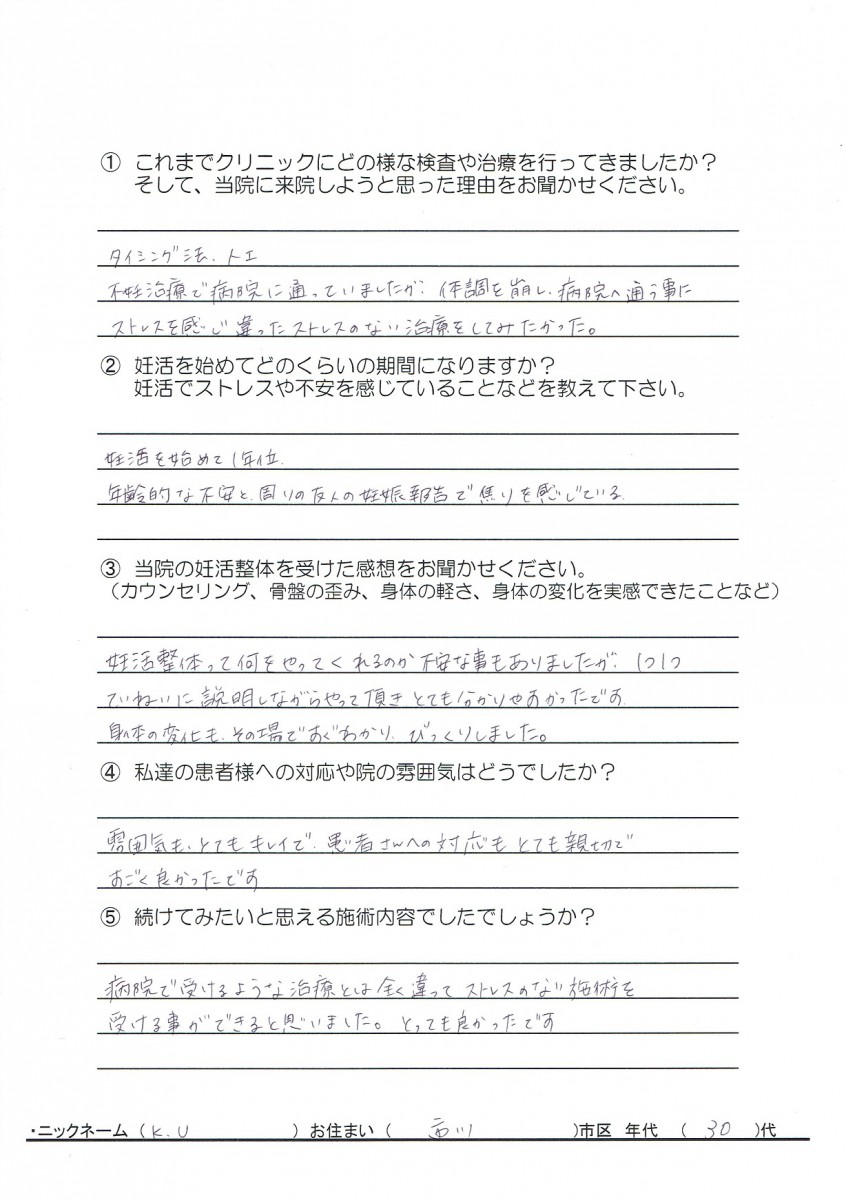 ① これまでクリニックにどの様な検査や治療を行ってきましたか？
そして、当院に来院しようと思った理由をお聞かせください。
タイミング法、トエ
不妊治療で病院に通っていましたが、体調を崩し、病院へ通う事に
ストレスを感じ違ったストレスのない治療をしてみたかった。
② 妊活を始めてどのくらいの期間になりますか？
妊活でストレスや不安を感じていることなどを教えて下さい。
妊活を始めて1年位.
年齢的な不安と、周りの友人の妊娠報告で焦りを感じている.
③ 当院の妊活整体を受けた感想をお聞かせください。
（カウンセリング、骨盤の歪み、身体の軽さ、身体の変化を実感できたことなど）
妊活整体って何をやってくれるのか不安な事もありましたが、1つ1つ
ていねいに説明しながらやって頂きとても分かりやすかったです.
身体の変化も、その場ですぐわかり、びっくりしました。
④ 私達の患者様への対応や院の雰囲気はどうでしたか？
雰囲気も、とてもキレイで、患者さんへの対応もとても親切で
すごく良かったです
⑤ 続けてみたいと思える施術内容でしたでしょうか？
病院で受けるような治療とは全く違ってストレスのない施術を
受ける事ができると思いました。とっても良かったです
・ニックネーム（K.U ）お住まい（ 市川 ）市区 年代 （ 30 ）代